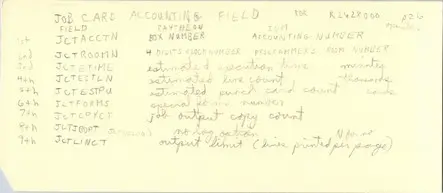 JOB CARD ACCOUNTING FIELD FOR
FIELD IBM
1st JCTACCTN BOX NUMBER ACCOUNTING NUMBER
JCTROOMN 4 DIGITS BOX NUMBER PROGRAMMER'S ROOM NUMBER
JCTETIME estimated execution time minutes
4th JCTESTLN estimated line count thousands
5th JCTESTPU estimated punch card count cards
6th JCTFORMS special forms number
7th JCTCPYCT job output copy count
8th no log option
9th JCTLINCT output limit (lines printed per page)